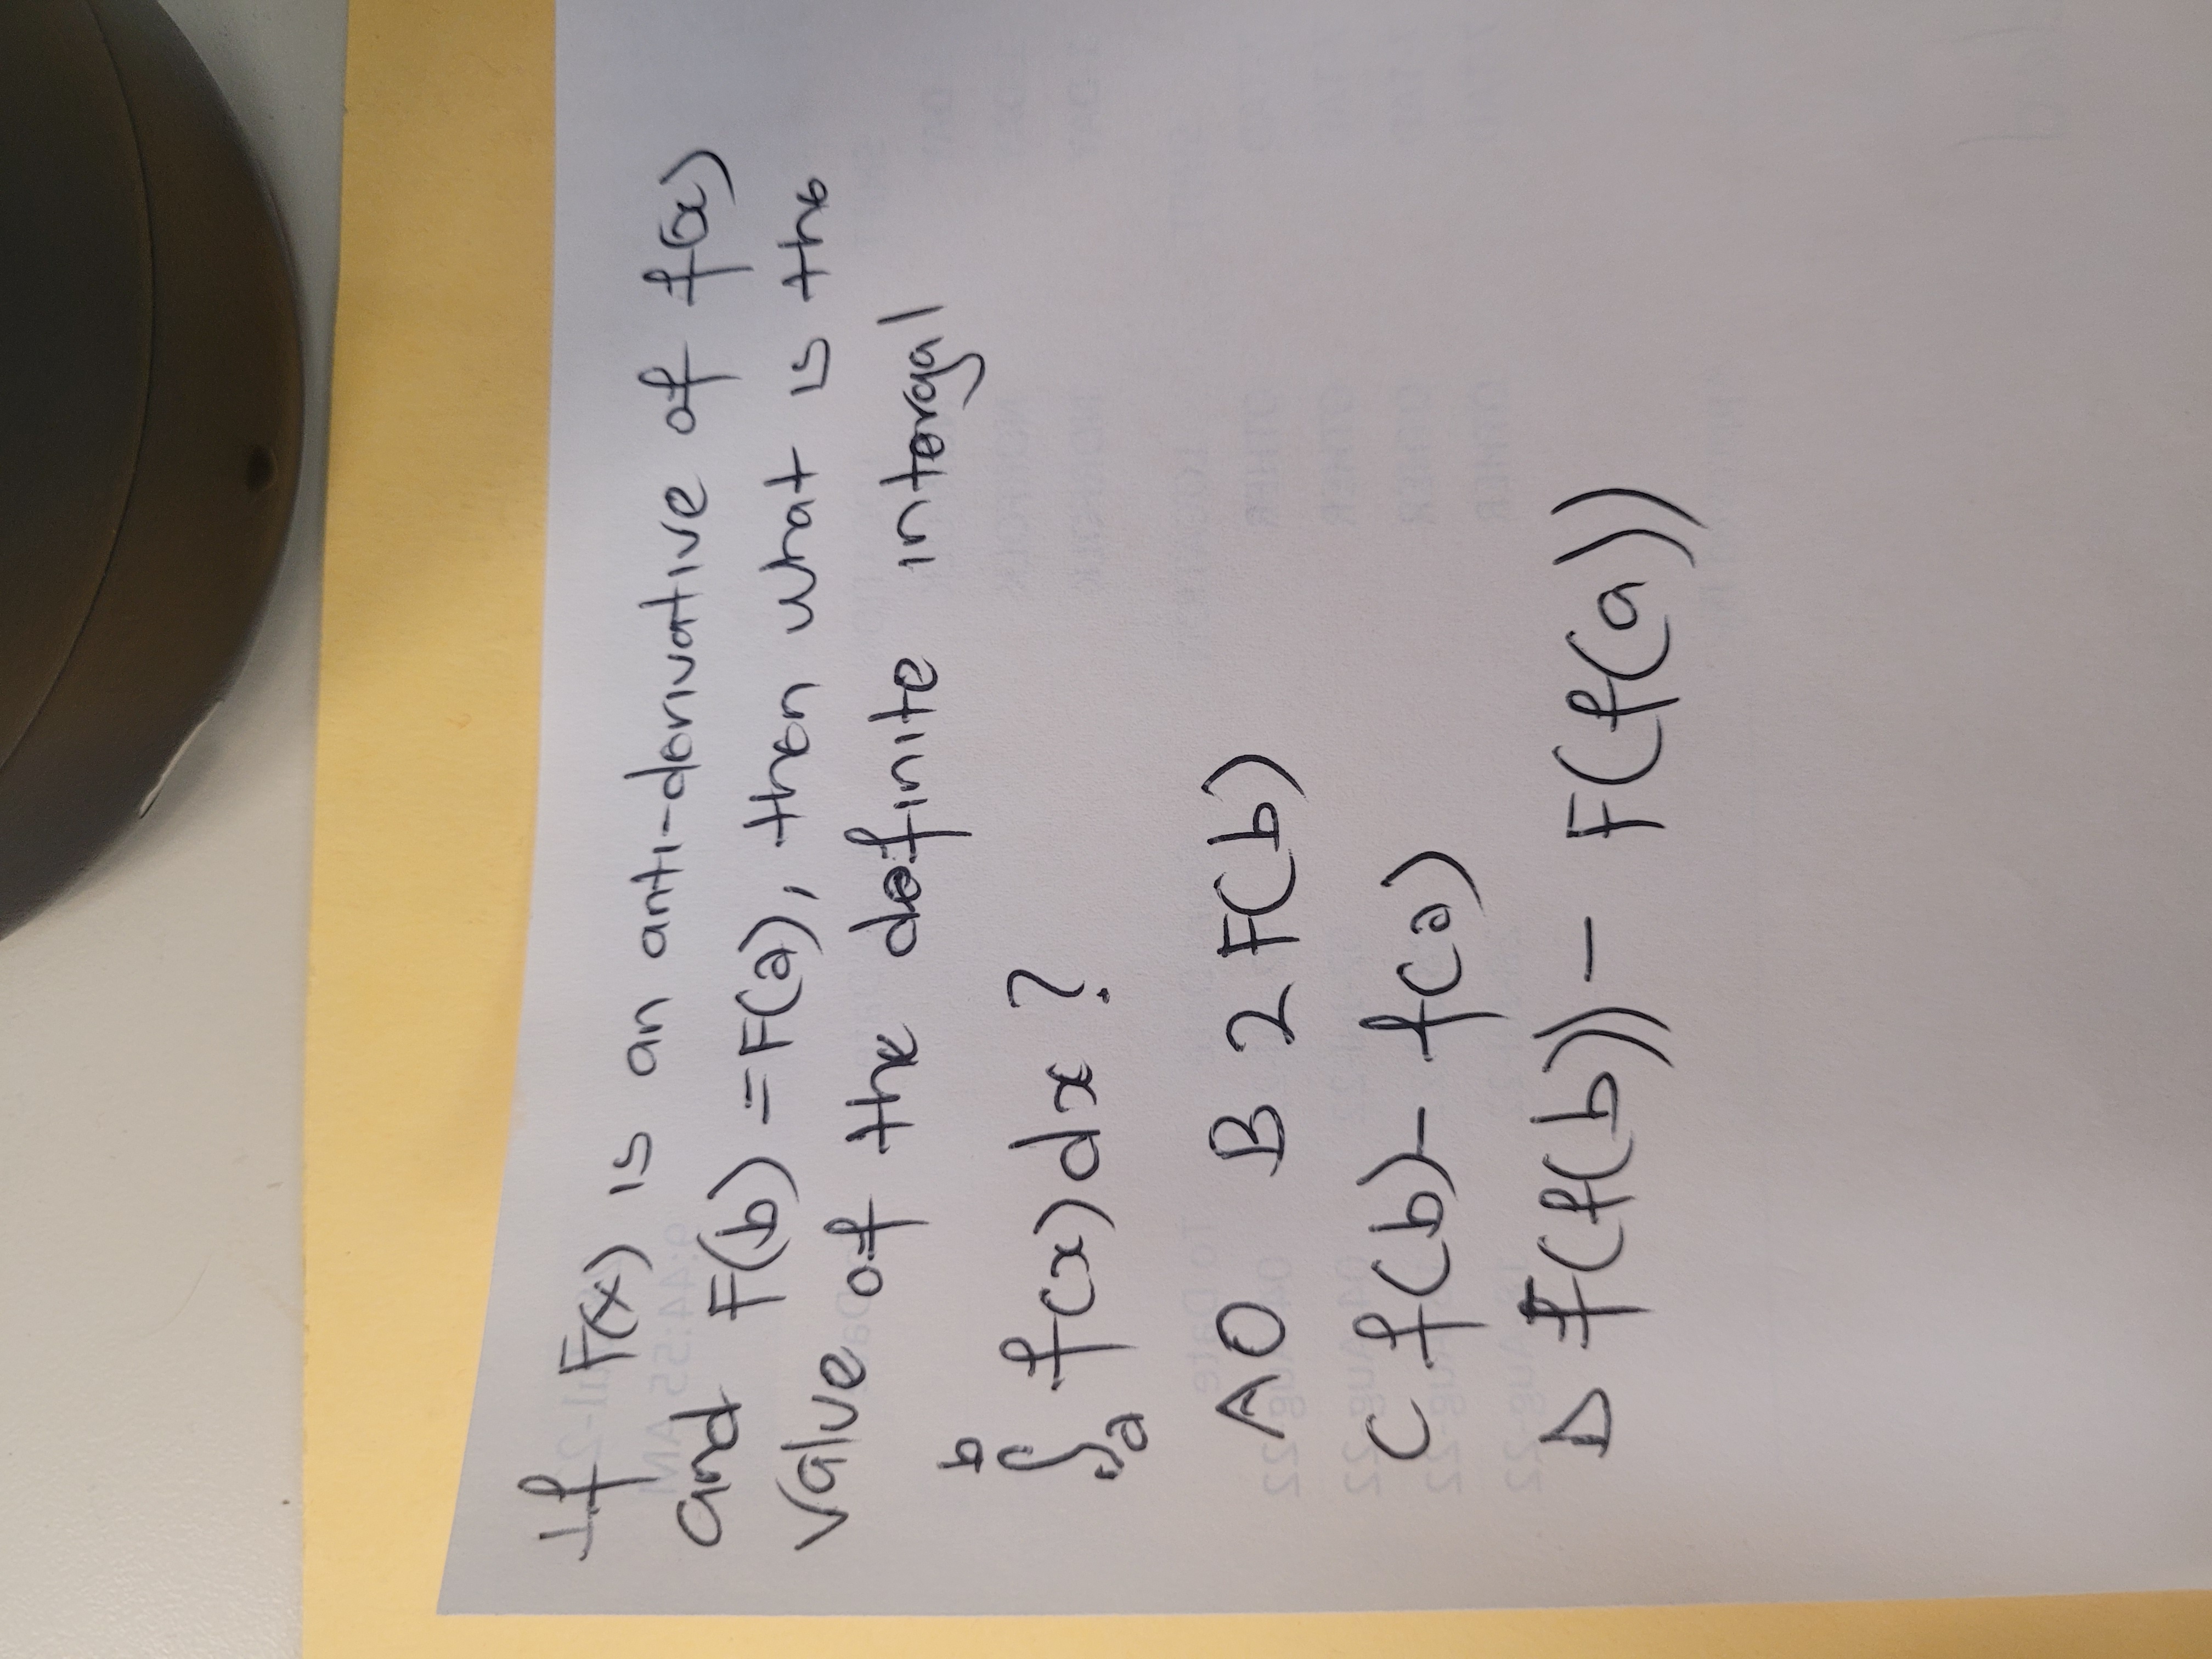 If F(x) is an anti-derivative of f(x)
and F(b) = F(a), then what is the
value of the definite intergal
∫ₐᵇ f(x)dx ?
A 0 B 2 F(b)
C f(b) - f(a)
D F(f(b)) - F(f(a))